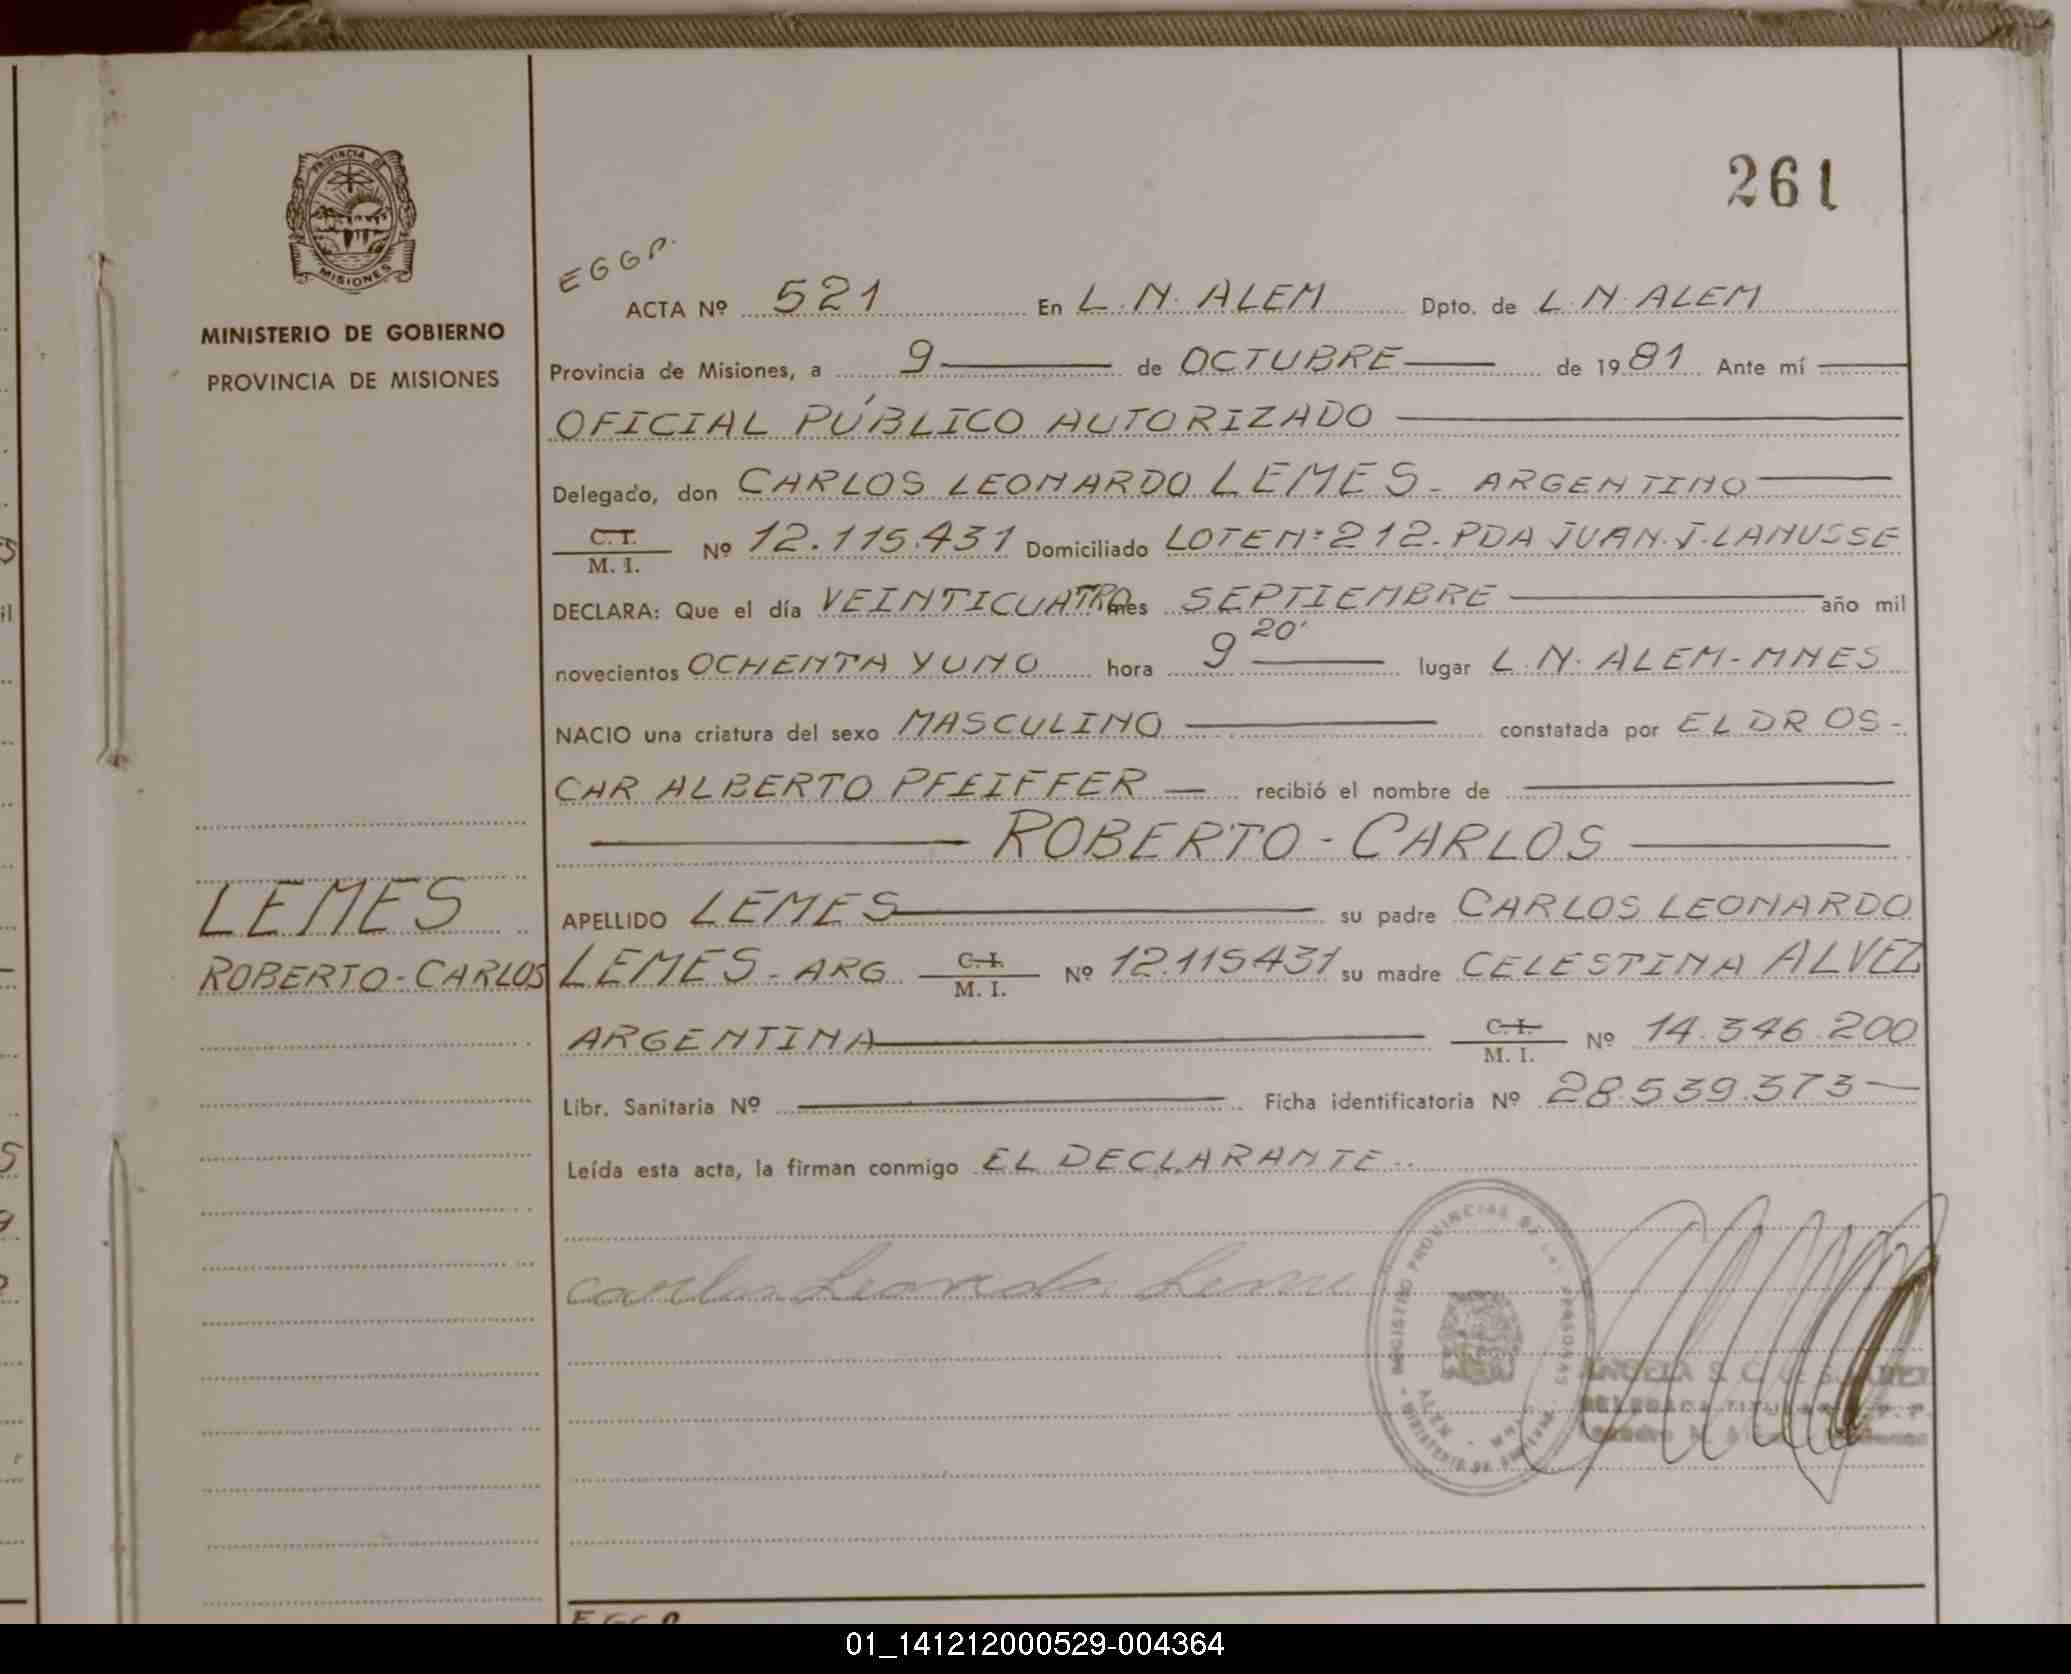 261
PROVINCIA DE
MISIONES
MINISTERIO DE GOBIERNO
PROVINCIA DE MISIONES
LEMES
ROBERTO-CARLOS
EGGP.
ACTA Nº 521 En L.N. ALEM Dpto. de L.N. ALEM
Provincia de Misiones, a 9 de OCTUBRE de 1981 Ante mí
OFICIAL PÚBLICO AUTORIZADO
Delegado, don CARLOS LEONARDO LEMES - ARGENTINO
C.I. M.I. Nº 12.115.431 Domiciliado LOTE Nº 212. PDA JUAN.J.LANUSSE
DECLARA: Que el día VEINTICUATRO mes SEPTIEMBRE año mil
novecientos OCHENTA Y UNO hora 9 20' lugar L.N. ALEM-MNES
NACIO una criatura del sexo MASCULINO constatada por EL DR OS-
CAR ALBERTO PFEIFFER - recibió el nombre de
ROBERTO - CARLOS
APELLIDO LEMES su padre CARLOS LEONARDO
LEMES - ARG. C.I. M.I. Nº 12.115431 su madre CELESTINA ALVEZ
ARGENTINA C.I. M.I. Nº 14.346.200
Libr. Sanitaria Nº Ficha identificatoria Nº 28.539.373
Leída esta acta, la firman conmigo EL DECLARANTE
Carlos Leonardo Leme
REGISTRO PROVINCIAL DE LAS PERSONAS
ALEM - MNES
MINISTERIO DE GOBIERNO
ANGELA S. C.
DELEGADA TITULAR
01_141212000529-004364